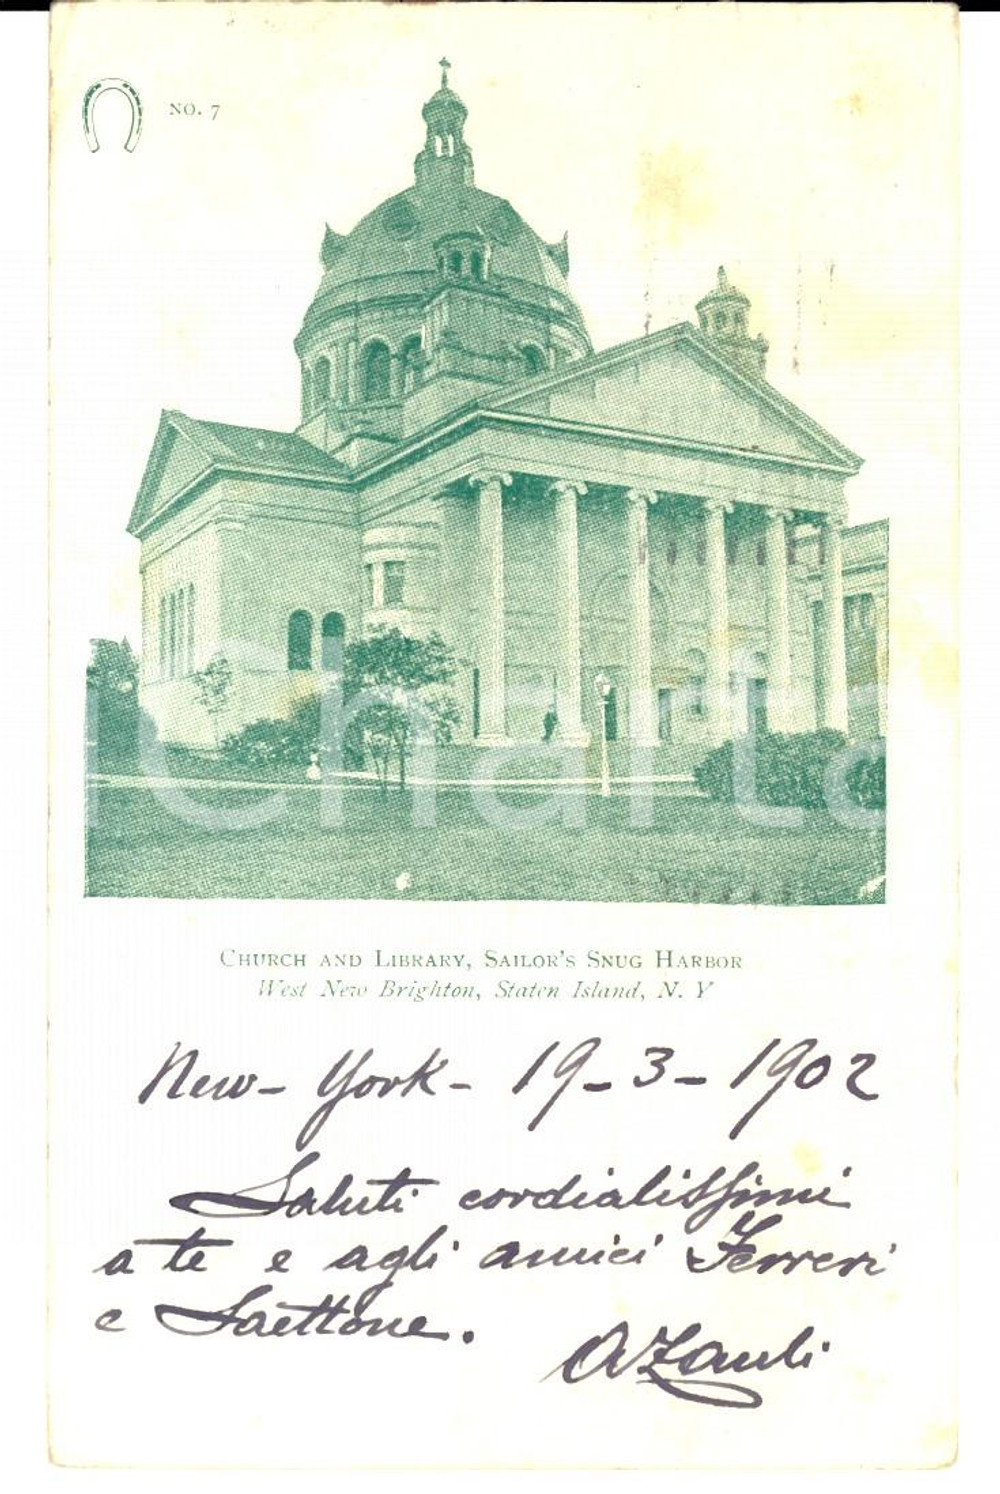 NO. 7
CHURCH AND LIBRARY, SAILOR'S SNUG HARBOR
West New Brighton, Staten Island, N. Y
New-York- 19-3-1902
Saluti cordialissimi
a te e agli amici Ferreri
e Saettone.
AZauli
charta